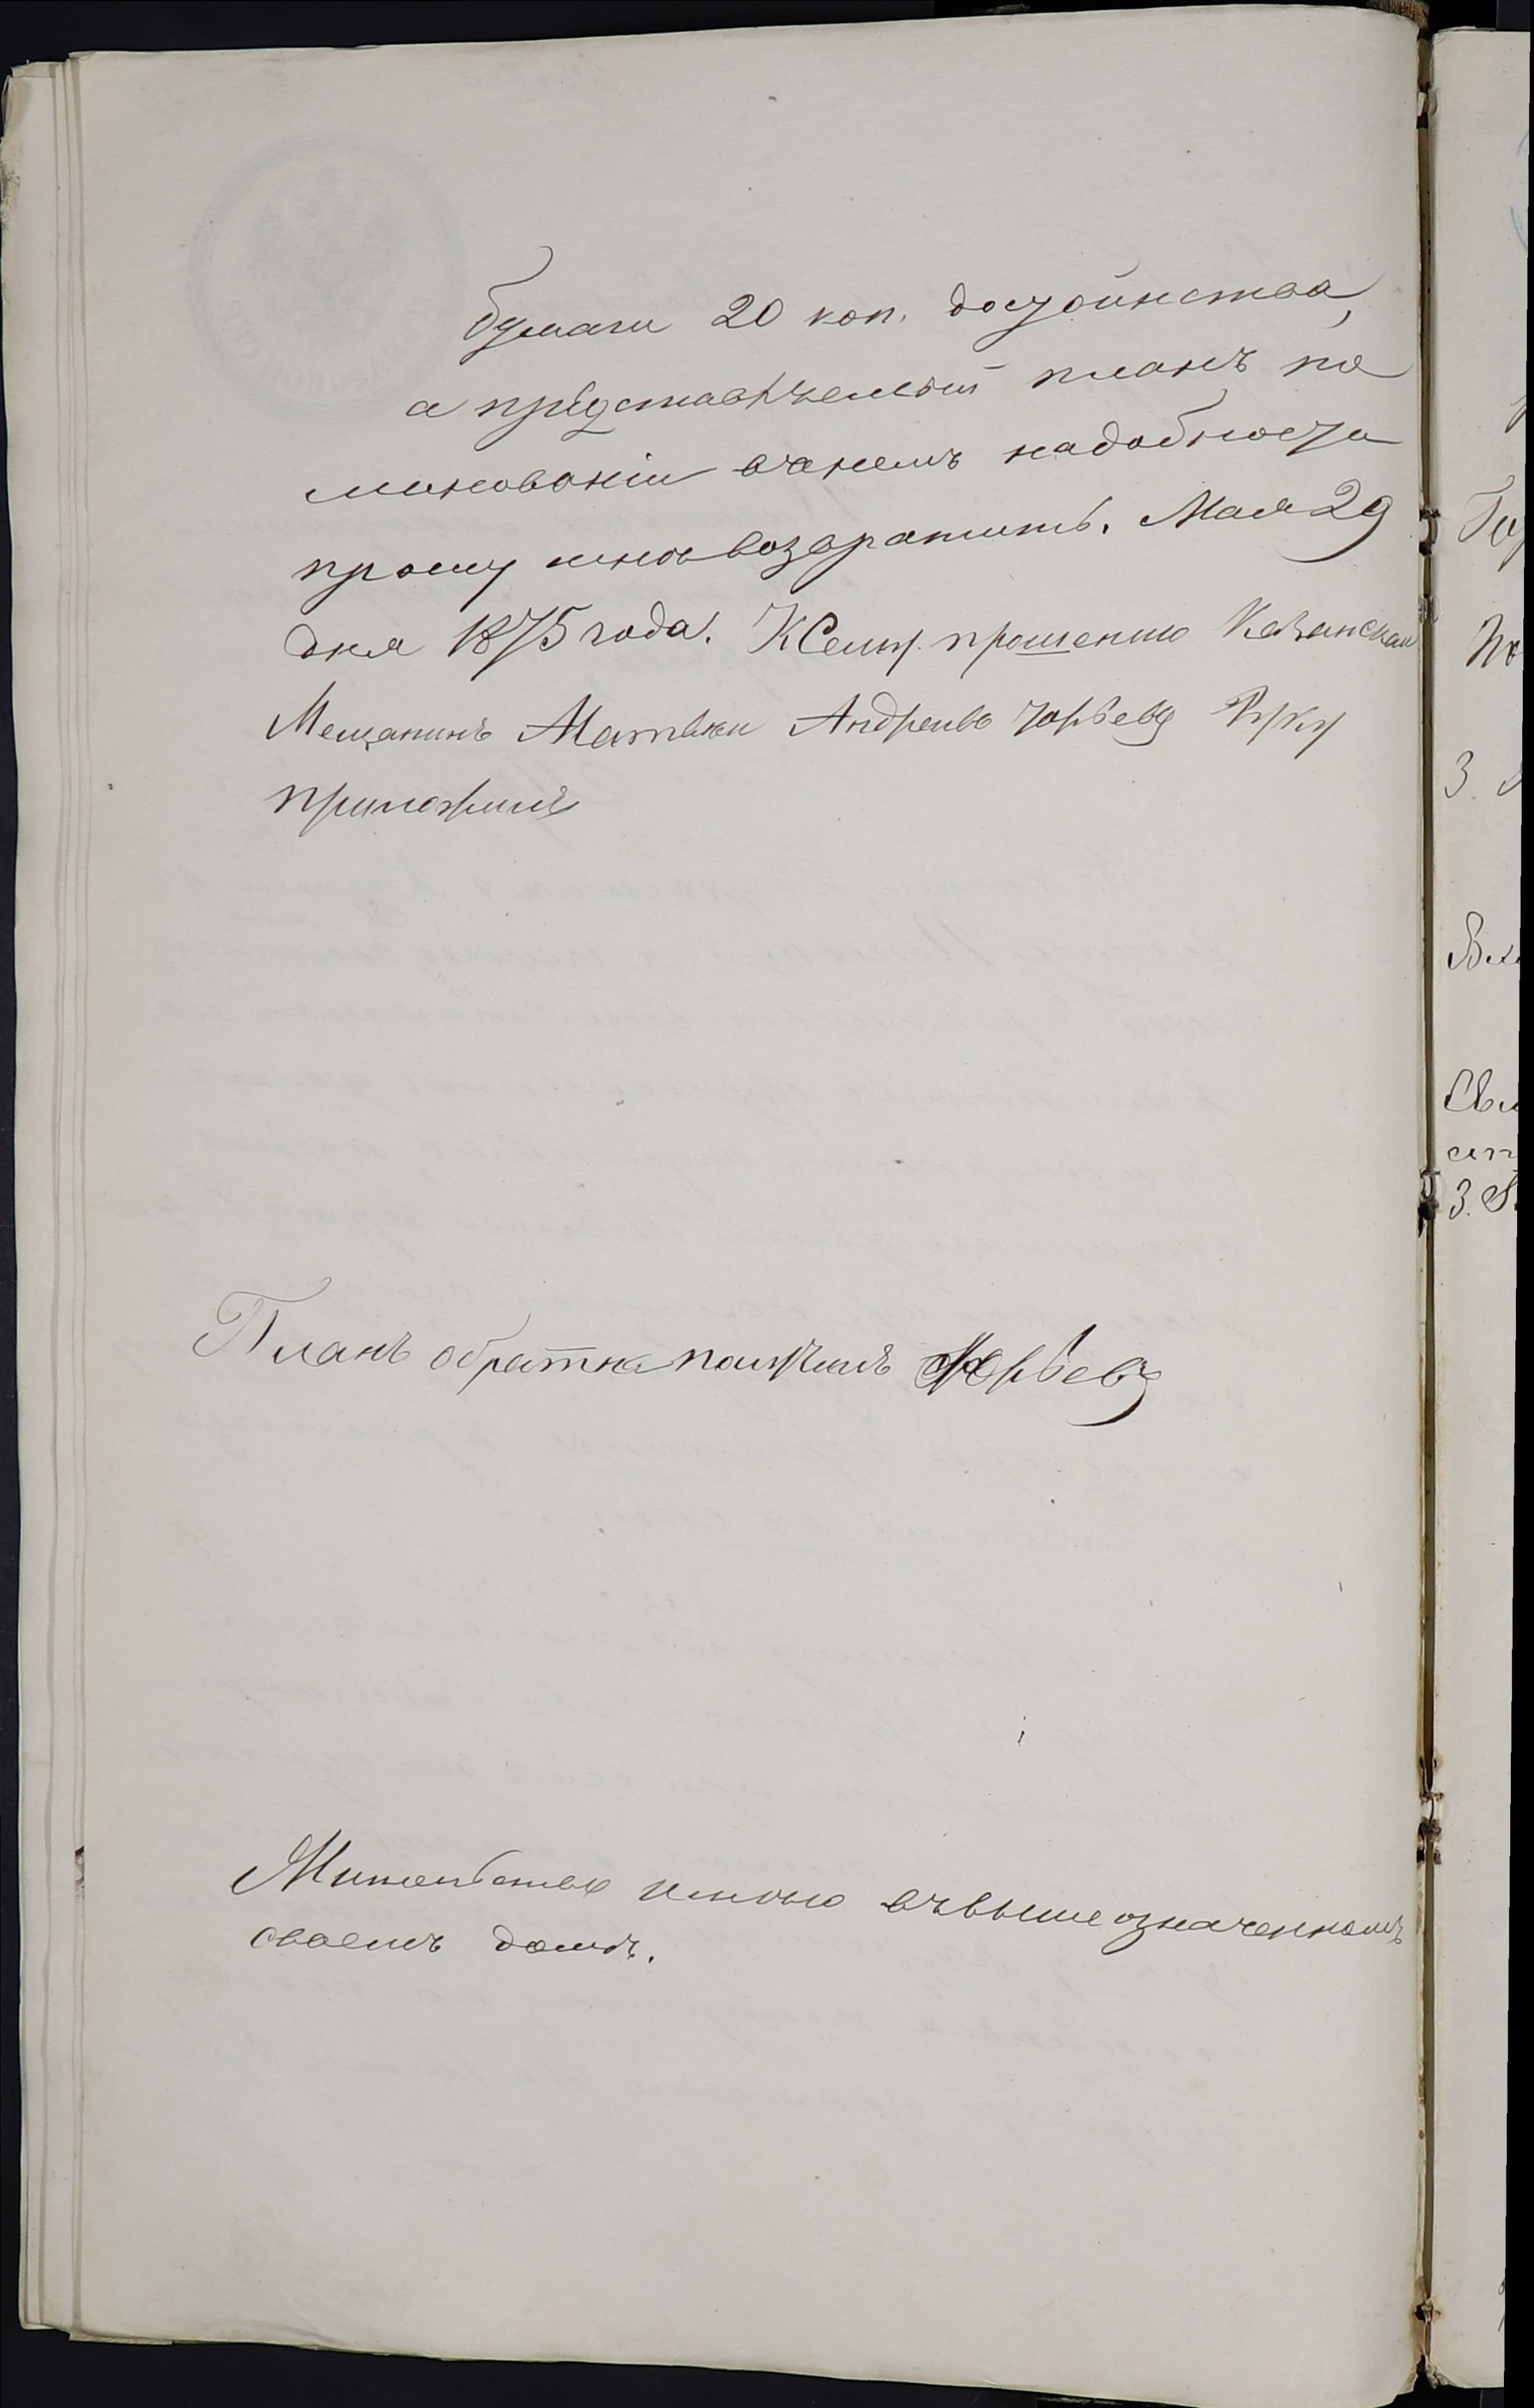 бумаги 20 коп. достоинства,
а представляемый планъ по
минованіи внемъ надобности
прошу мнѣ возвратить. Мая 29
дня 1875 года. К Сему прошенію Казанскай
Мещанинъ Матвѣи Андреивъ Юрьевъ Руку
приложилъ
Планъ обратна получилъ Юрьевъ
Жительство имѣю въ вышеозначенномъ
своемъ домѣ.